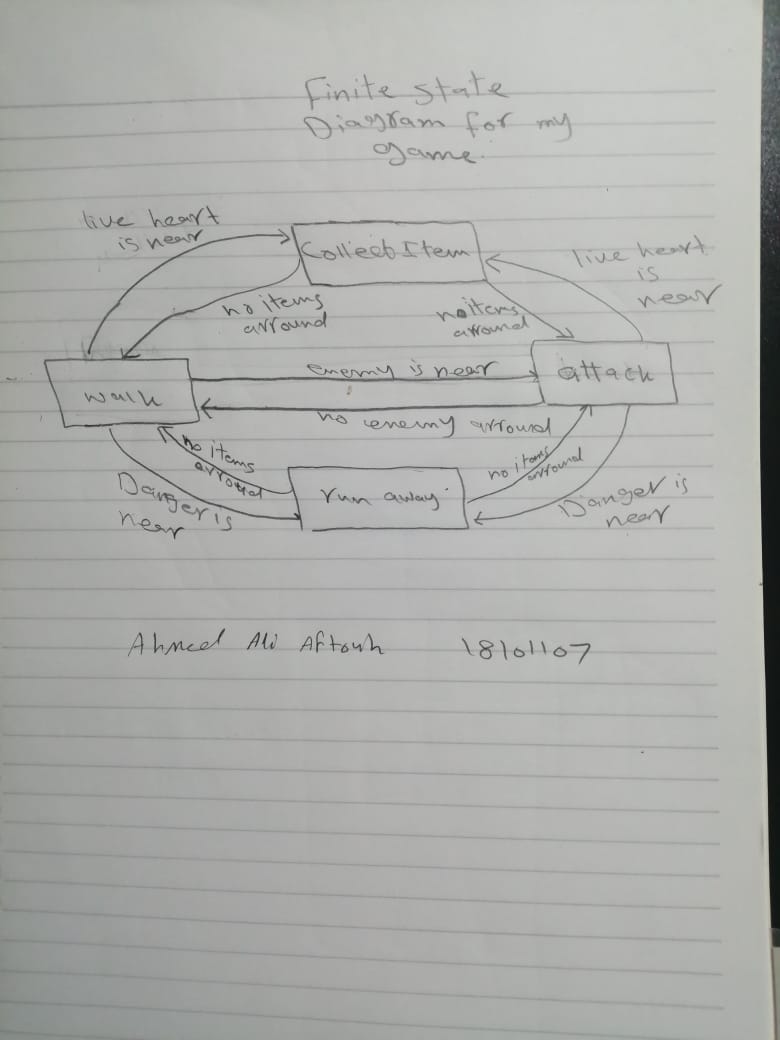 Finite state
Diagram for my
game.
live heart
is near
Collect Item
live heart
is
near
no items
arround
no items
arround
enemy is near
attack
walk
no enemy arround
no items
arround
run away
no items
arround
Danger is
near
Danger is
near
Ahmed Ali Aftouh 18101107